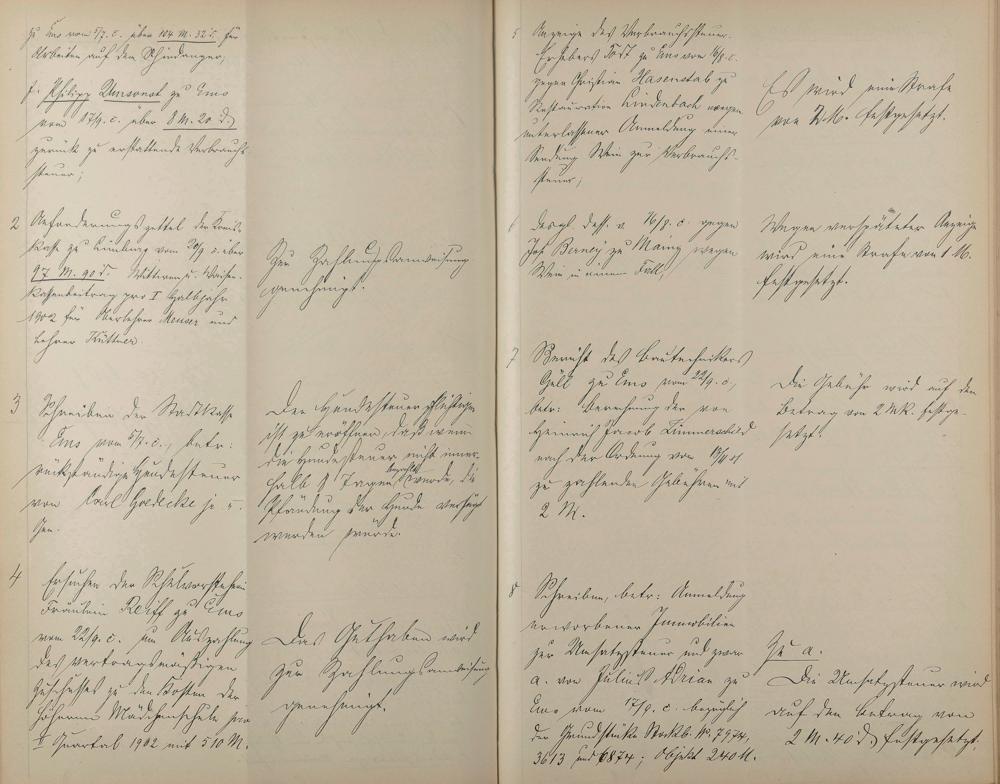 zu Ems vom 7/7. c. über 104 M. 32 d. für
Arbeiten auf dem Schindanger,
f. Philipp Umsonst zu Ems
vom 17/9. c. über 8 M. 20 d,
zurück zu erstattende Verbrauchs
steuer;
2 Anforderungszettel der Kreis-
kasse zu Limburg vom 20/9 c. über
97 M. 90 d. Wittwen u. Waisen-
kassenbeitrag pro I Halbjahr
1902 für Oberlehrer Meuser und
Lehrer Küttner.
Zur Zahlungsanweisung
genehmigt.
3 Schreiben der Stadtkasse
Ems vom 5/7. c., betr:
rückständige Hundesteuer
von Karl Goedecke
Dem Hundesteuerpflichtigen
ist zu eröffnen, daß wenn
die Hundesteuer nicht inner-
halb 8 Tagen bezahlt werde, die
Pfändung der Hunde verfügt
werden würde.
4 Ersuchen der Schulvorsteherin
Fräulein Reiff zu Ems
vom 22/9. c. um Auszahlung
des vertragsmäßigen
Zuschusses zu den Kosten der
Höheren Mädchenschule pro
II Quartal 1902 mit 510 M.
Das Guthaben wird
zur Zahlungsanweisung
genehmigt.
5 Anzeige des Verbrauchssteuer-
Erhebers Födt zu Ems vom c.
gegen Christian Hasenstab zu
Restauration Lindenbach wegen
unterlassener Anmeldung einer
Sendung Wein zur Verbrauchs-
steuer;
Es wird eine Strafe
von 2 M. festgesetzt.
6 Desgl. dess. v. 16/9. c. gegen
Joh Berncy zu Mainz wegen
Wein in einem Fall,
Wegen verspäteter Anzeige
wird eine Strafe von 1 M.
festgesetzt.
7 Bericht des Bautechnikers
Güll zu Ems vom 22/9. c.,
betr: Berechnung der von
Heinrich Jacob Linnerschied
nach der Ordnung vom
zu zahlenden Gebühren mit
2 M.
Die Gebühr wird auf den
Betrag von 2 Mk. festge-
setzt.
8 Schreiben, betr: Anmeldung
erworbener Immobilien
zur Umsatzsteuer und zwar
a. von Julius Adrian zu
Ems vom 17/9. c. bezüglich
der Grundstücke Stockb. N. 7974,
3613 und 6874; Objekt 240 M.
Zu a.
Die Umsatzsteuer wird
auf den Betrag von
2 M. 40 d, festgesetzt.